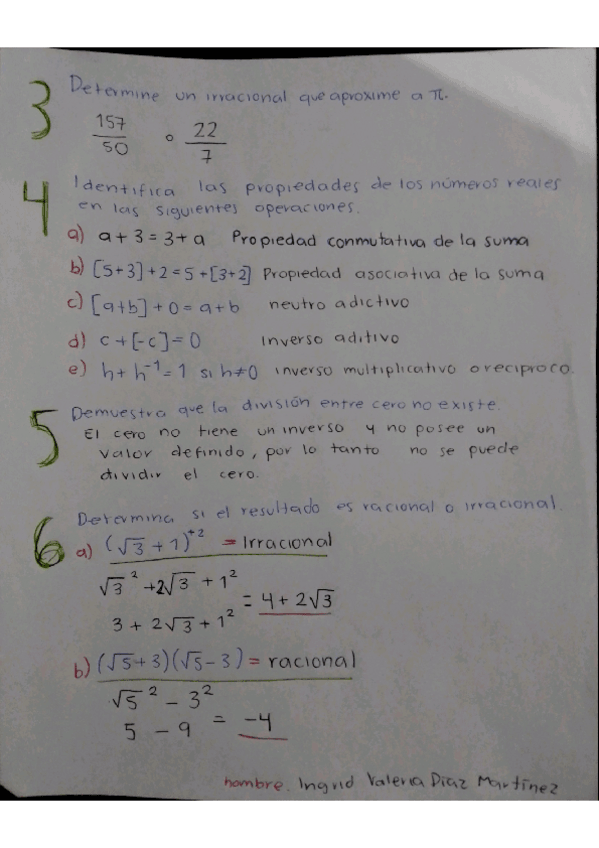 3 Determine un irracional que aproxime a π.
157/50 o 22/7
4 Identifica las propiedades de los números reales
en las siguientes operaciones.
a) a + 3 = 3 + a Propiedad conmutativa de la suma
b) [5+3] + 2 = 5 + [3+2] Propiedad asociativa de la suma
c) [a+b] + 0 = a + b neutro adictivo
d) c + [-c] = 0 inverso aditivo
e) h + h⁻¹ = 1 si h ≠ 0 inverso multiplicativo o reciproco.
5 Demuestra que la división entre cero no existe.
El cero no tiene un inverso y no posee un
valor definido, por lo tanto no se puede
dividir el cero.
6 Determina si el resultado es racional o irracional.
a) (√3 + 1)⁺² = Irracional
√3² + 2√3 + 1²
= 4 + 2√3
3 + 2√3 + 1²
b) (√5 + 3)(√5 - 3) = racional
√5² - 3²
5 - 9 = -4
nombre. Ingrid Valeria Diaz Martínez